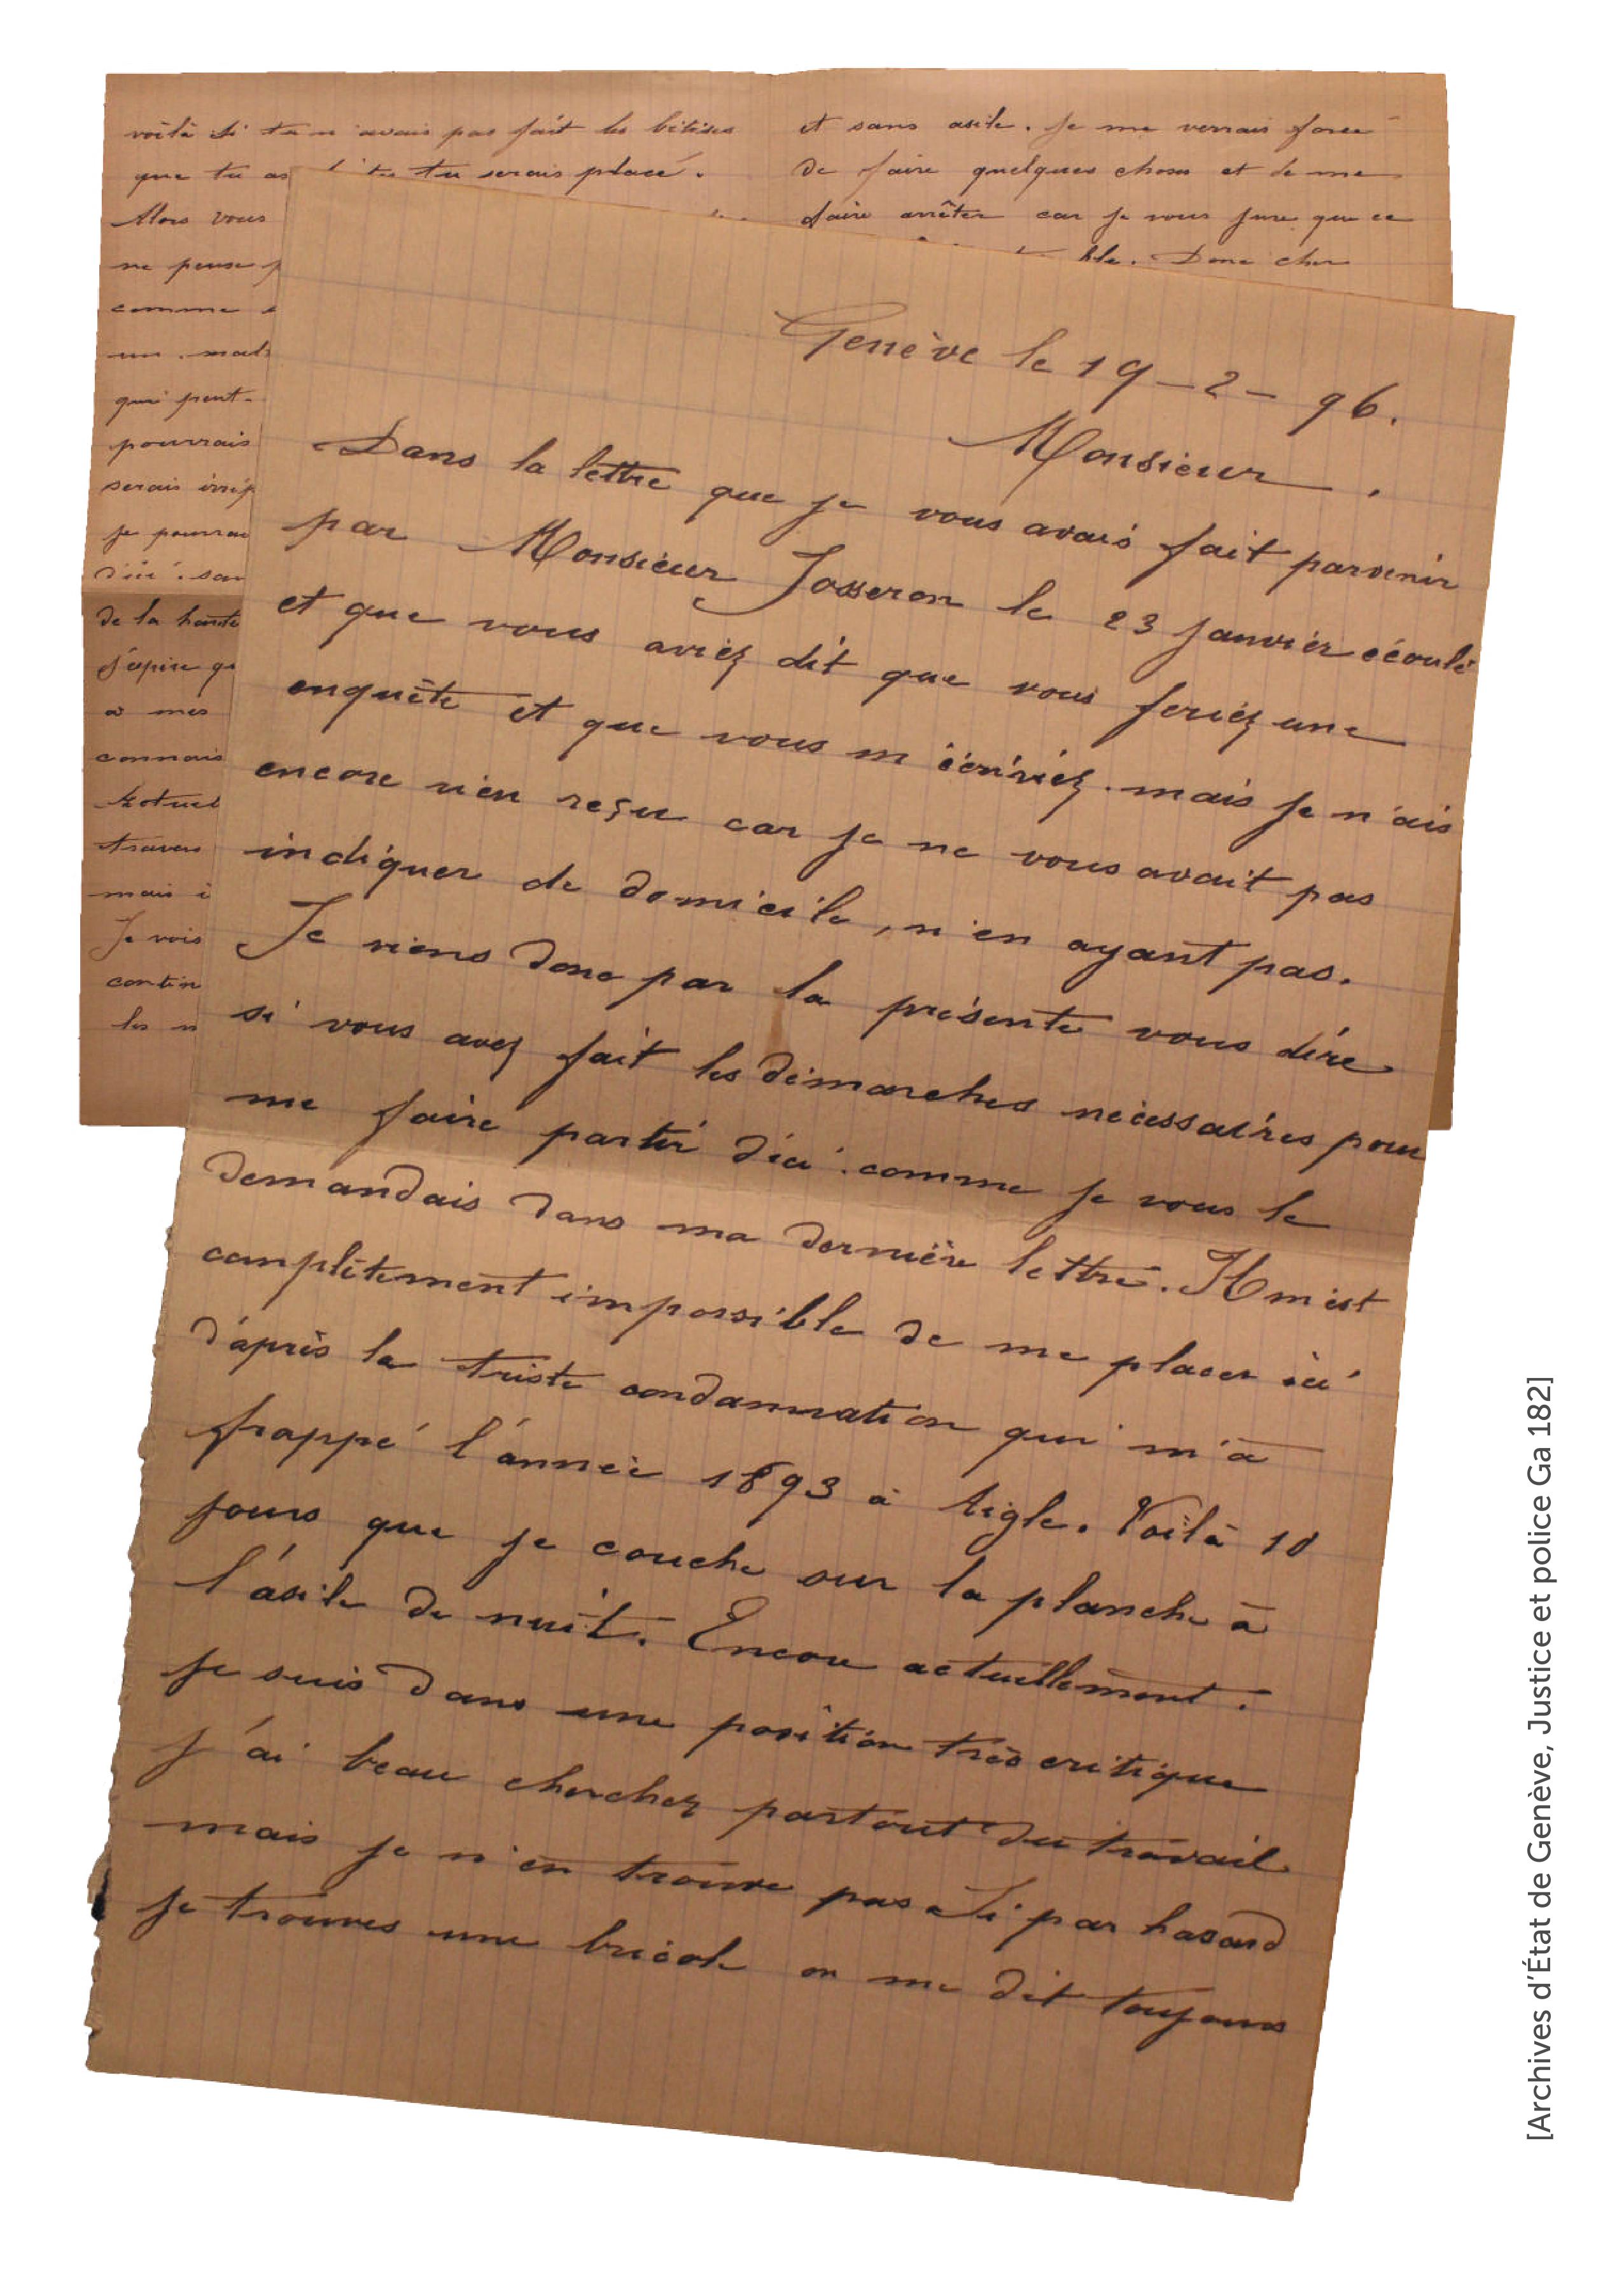 voilà si tu n'avais pas fait les bêtises
que tu as tu serais placé.
Alors vous
ne pense
comme
un
qui peut-
pourrais
serais
je pourrai
d'ici
de la
J'espère
à mes
connais
travers
mais
Je vois
contin
les
et sans asile. Je me verrais forcé
de faire quelques choses et de me
faire arrêter car je vous jure que ce
Donc cher
Genève le 19-2-96.
Monsieur.
Dans la lettre que je vous avais fait parvenir
par Monsieur Josseron le 23 Janvier écoulé
et que vous aviez dit que vous feriez une
enquête et que vous m'écririez. mais je n'ais
encore rien reçu car je ne vous avait pas
indiquer de domicile, n'en ayant pas.
Je viens donc par la présente vous dire
si vous avez fait les démarches nécessaires pour
me faire partir d'ici comme je vous le
demandais dans ma dernière lettre. Il m'est
complètement impossible de me placer ici
d'après la triste condamnation qui m'a
frappé l'année 1893 à Aigle. Voilà 10
jours que je couche sur la planche à
l'asile de nuit. Encore actuellement.
je suis dans une position très critique
j'ai beau cherchez partout du travail
mais je n'en trouve pas. Si par hasard
je trouves une bricole on me dit toujours
[Archives d'État de Genève, Justice et police Ga 182]